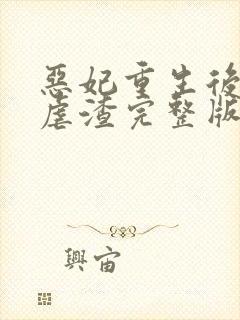 惡妃重生後
虐渣完整版
興宙